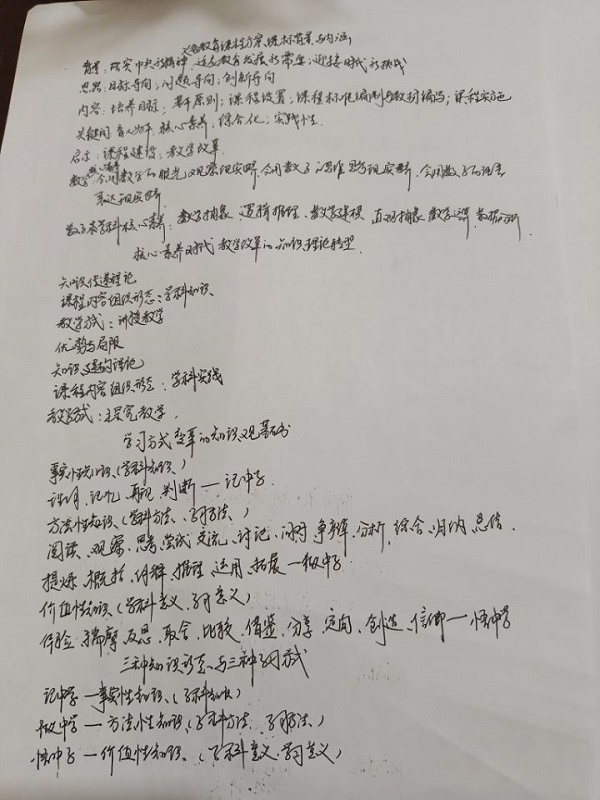 义务教育课程方案、课标背景与内涵
背景:落实中央新精神、适应教育发展新需要;迎接时代新挑战
思路:目标导向;问题导向;创新导向
内容:培养目标;基本原则;课程设置;课程标准编制与教材编写;课程实施
关键词:育人为本、核心素养、综合化;实践性
启示:课程建设;教学改革
核心素养
数学:会用数学的眼光观察现实世界,会用数学的思维思考现实世界,会用数学的语言
表达现实世界
数学学科核心素养:数学抽象、逻辑推理、数学建模、直观抽象、数学运算、数据分析
核心素养时代教学改革的知识理论转型
知识传递理论
课程内容组织形态:学科知识
教学方式:讲授教学
优势与局限
知识建构理论
课程内容组织形态:学科实践
教学方式:探究教学.
学习方式变革的知识观基础
事实性知识、(学科知识、)
识记、再现、判断—记中学
方法性知识、(学科方法、学习方法、)
阅读、观察、思考、尝试、交流、讨论、问对、争辩、分析、综合、归纳、总结、
提炼、概括、解释、推理、运用、拓展—做中学
价值性知识、(学科意义、学习意义)
体验、揣摩、反思、取舍、比较、借鉴、分享、定向、创造、信仰—悟中学
三种知识形态与三种学习方式
记中学—事实性知识、(学科知识)
做中学—方法性知识、(学科方法、学习方法、)
悟中学—价值性知识、(学科意义、学习意义)